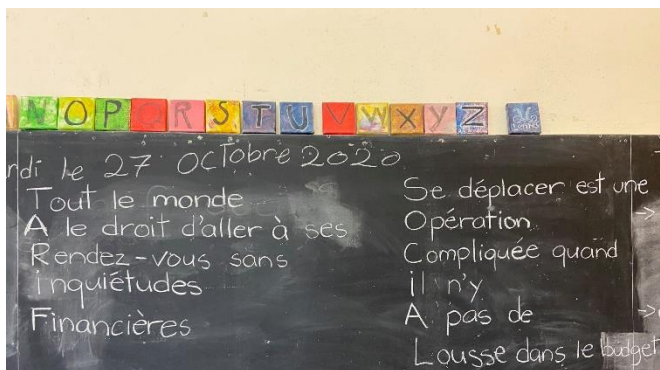 N O P Q R S T U V W X Y Z
rdi le 27 Octobre 2020
Tout le monde
A le droit d'aller à ses
Rendez-vous sans
inquiétudes
Financières
Se déplacer est une
Opération
Compliquée quand
il n'y
A pas de
Lousse dans le budget